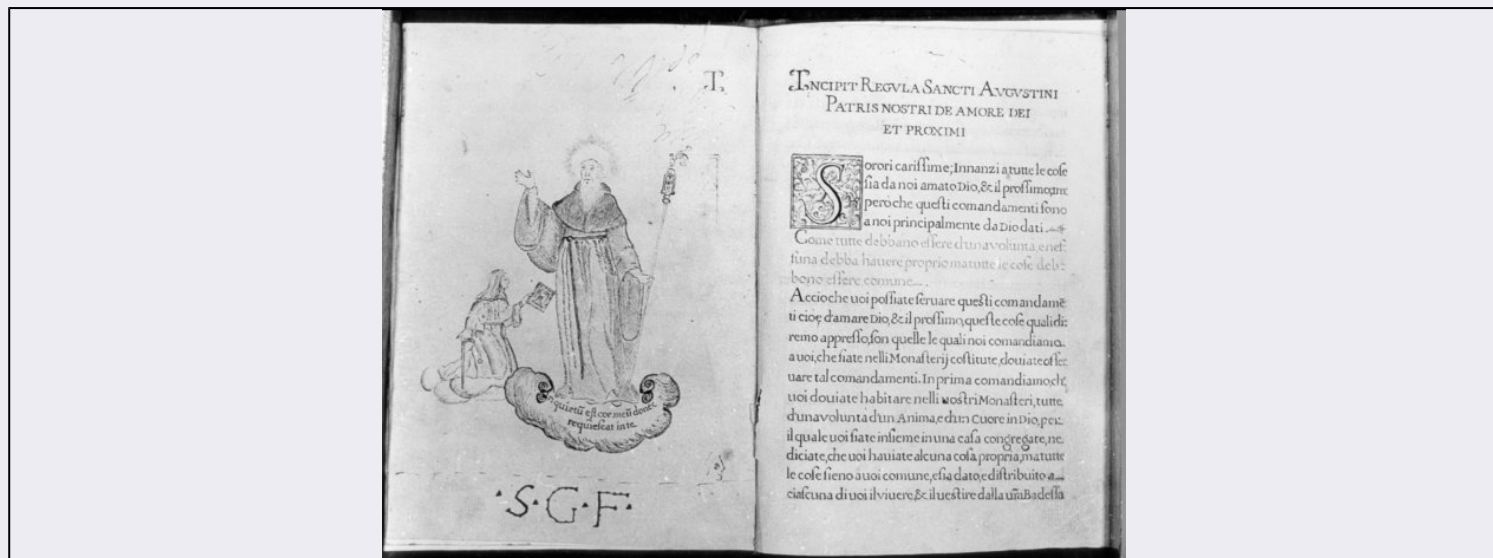 T.
nquietū est cor meū donec
requiescat in te.
·S·G·F·
INCIPIT REGVLA SANCTI AVGVSTINI
PATRIS NOSTRI DE AMORE DEI
ET PROXIMI
Sorori carissime; Innanzi a tutte le cose
sia da noi amato Dio, & il prossimo,
pero che questi comandamenti sono
a noi principalmente da Dio dati.
Come tutte debbano essere d'una volunta, e nes=
suna debba havere proprio ma tutte le cose deb=
bono essere comune.
Accioche uoi possiate seruare questi comandamē
ti cioe d'amare Dio, & il prossimo, queste cose quali di=
remo appresso, son quelle le quali noi comandiamo.
a uoi, che siate nelli Monasterij costitute, douiate osser
uare tal comandamenti. In prima comandiamo, che
uoi douiate habitare nelli uostri Monasteri, tutte
d'una volunta d'un Anima, e d'un Cuore in Dio, per
il quale uoi siate insieme in una casa congregate, ne
diciate, che uoi hauiate alcuna cosa propria, ma tutte
le cose sieno a uoi comune, e sia dato, e distribuito a
ciascuna di uoi il uiuere, & il uestire dalla ur̄a Badessa